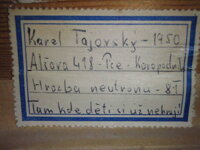 Karel Tajovský - 1950
Alšova 418 - Pce - Koropodník
Hrozba neutronu - 81
Tam kde děti si už nehrají